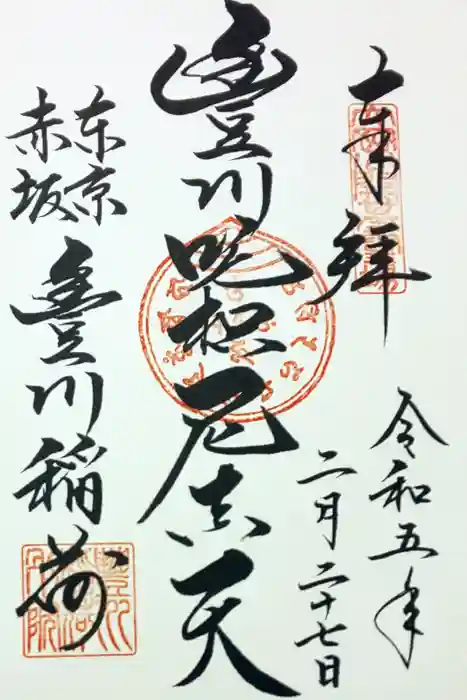 奉拝
令和五年
二月二十七日
豊川吒枳尼真天
東京
赤坂
豊川稲荷